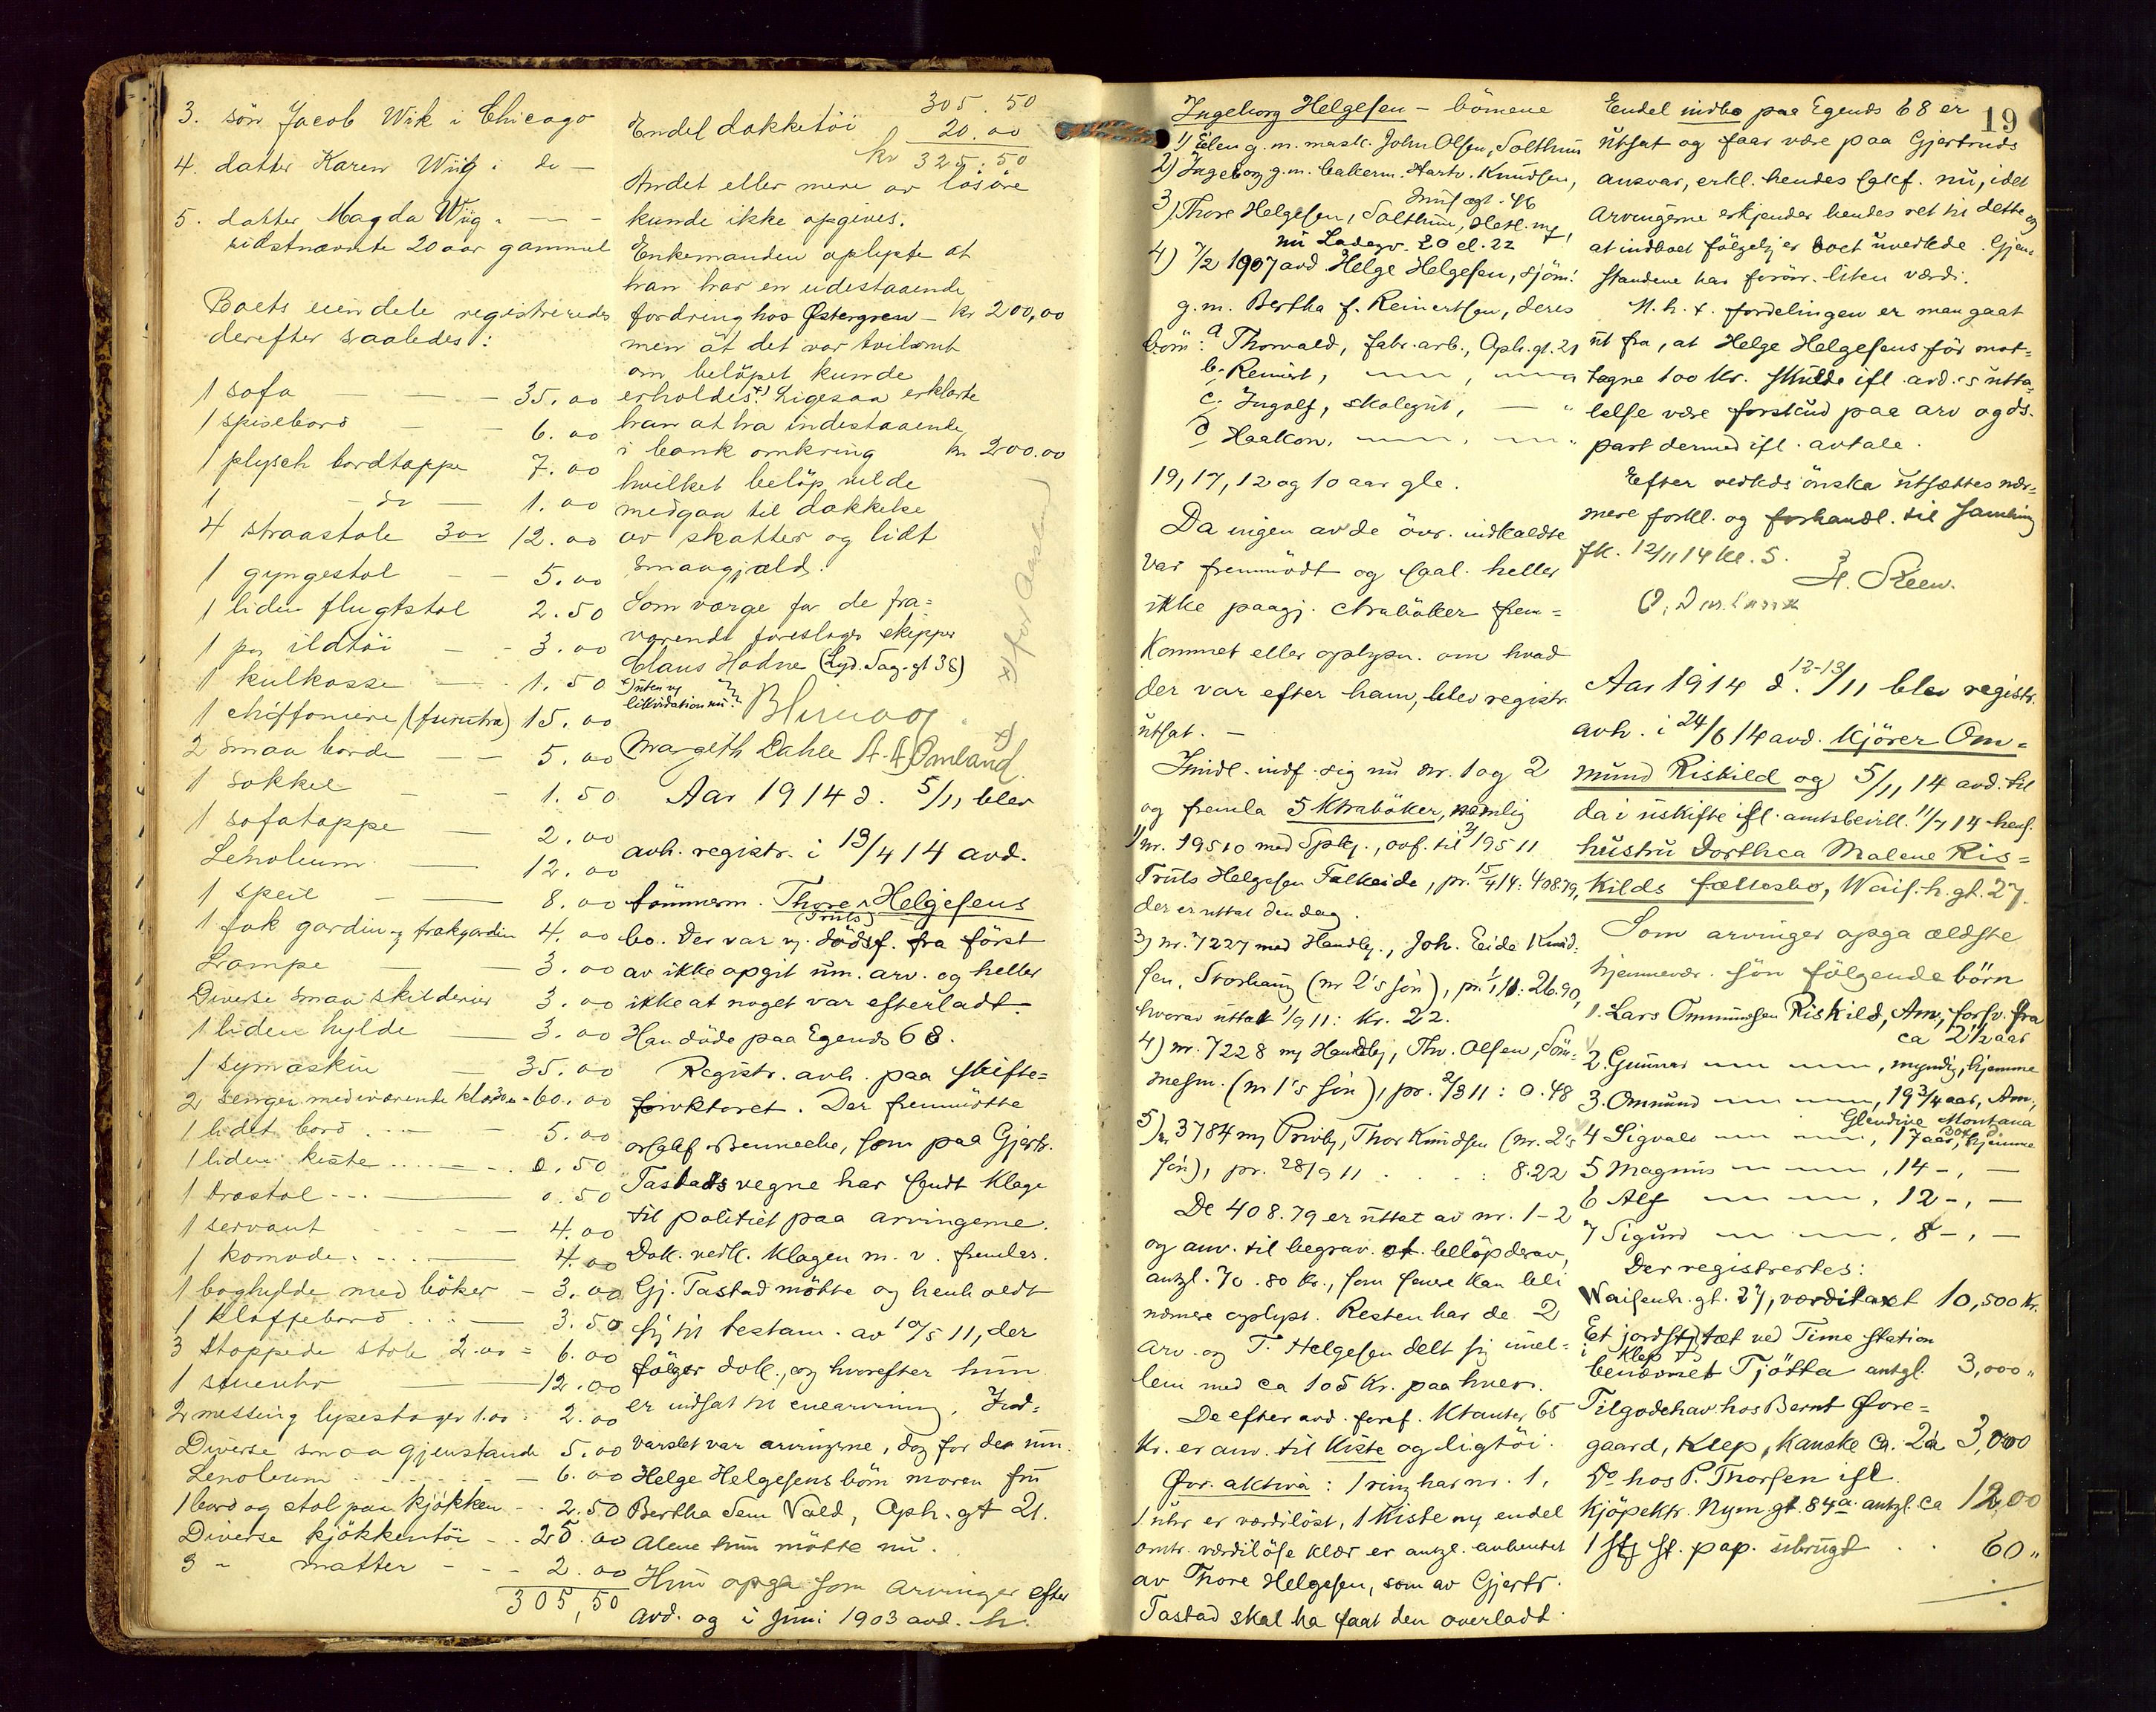 3. sön Jacob Wik i Chicago
4. datter Karen Wiig i do —
5. datter Magda Wiig. — —
sidstnævnte 20 aar gammel
Boets eiendele registreredes
derefter saaledes:
1 sofa — — 35.00
1 spisebord — — 6.00
1 plysch bordtæppe 7.00
1 — do — 1.00
4 straastole 3.00 12.00
1 gyngestol — — 5.00
1 liden flugtstol 2.50
1 par ildtöi — — 3.00
1 kulkasse — 1.50
1 chiffoniere (furutræ) 15.00
2 smaa borde — — 5.00
1 sokkel — — 1.50
1 sofatæppe — 2.00
Lenoleum — 12.00
1 speil — — 8.00
1 fak gardin og trækgardin 4.00
Lampe — — 3.00
Diverse smaa skilderier 3.00
1 liden hylde — 3.00
1 symaskin — 35.00
2 senger med iværende klæder 60.00
1 lidet bord . — 5.00
1 liden kiste — 0.50
1 træstol — 0.50
1 servant — 4.00
1 komode — 4.00
1 boghylde med böker — 3.00
1 klaffebord — 3.50
3 stoppede stole 2.00 = 6.00
1 stueuhr — 12.00
2 messing lysestager 1.00 = 2.00
Diverse smaa gjenstande 5.00
Lenoleum — 6.00
1 bord og stol paa kjökken — 2.50
Diverse kjökkentöi — 25.00
3 " matter — 2.00
305,50
305.50
Endel dækketöi 20.00
kr 325.50
Andet eller mere av lösöre
kunde ikke opgives.
Enkemanden oplyste at
han har en udestaaende
fordring hos Østergren — kr 200,00
men at det var tvilsomt
om belöpet kunde
erholdes. x) Ligesaa erklærte
han at ha indestaaende
i bank omkring kr 200.00
hvilket belöp vilde
medgaa til dækkelse
av skatter og lidt
smaagjæld.
Som værge for de fra=
værende foresloges skipper
Claus Hodne (Lyd. Sag. gt 38)
Margeth Dahle A. A. Ømland x)
Aar 1914 d. 5/11 blev
avh. registr. i 13/4 14 avd.
tömmerm. Thore Helgesens
(Truls)
bo. Der var ny dödsf. fra först
av ikke opgit um. arv. og heller
ikke at noget var efterladt.
Han döde paa Egends 68.
Registr. avh. paa skifte=
forvktoret. Der fremmötte
orsakf Bennecke, som paa Gjertr.
Tastads vegne har sendt klage
til politiet paa arvingerne.
Dok. vedk. klagen m. v. fremlær.
Gj. Tastad mötte og henholdt
sig til testam. av 10/5 11, der
fölger dok., og hvorefter hun
er indsat til enearving. Ind=
varslet var arvingerne, dog for den um.
Helge Helgesens börn moren fru
Bertha Sem Vald, Oph. gt 21.
Alene hun mötte nu.
Hun opga som arvinger efter
avd. og i juni 1903 avd. h.
19
Ingeborg Helgesen — börnene
1) Elen g. m. mask. John Olsen, Solthun
2) Ingeborg g. m. bakerm. Hartv. Knudsen,
Musægt. 46
3) Thore Helgesen, Solthun, Hetl. m f,
nu Ladegv. 20 el. 22
4) 7/2 1907 avd. Helge Helgesen, sjöm!
g. m. Bertha f. Reinertsen, deres
börn: a Thorvald, fabr. arb., Oph. gt. 21
b, Reinert, — " —, — " —
c. Ingolf, skolegut, — "
d Haakon, — " —, — " —
19, 17, 12 og 10 aar gle.
Da ingen av de övr. indkaldte
var fremmödt og saal. heller
ikke paagj. ktrabøker frem=
kommet eller oplysn. om hvad
der var efter ham, blev registr.
utsat. —
Imidl. indf. sig nu nr. 1 og 2
og fremla 5 ktrabøker, nemlig
1) nr. 19510 med Spbg., ovf. til 2) 19511
Truls Helgesen Falkeide, pr. 15/4 14: 408.79,
der er uttat den dag.
3) nr. 7227 med Handby., Joh. Eide Knud=
sen, Storhaug (nr 2's sön), pr. 1/1 11: 26.90,
hvorav uttat 1/9 11: kr. 22.
4) nr. 7228 m Handby, Thv. Olsen, Töm=
mesm. (nr 1's sön), pr. 2/3 11: 0.48
5) nr 3784 m Privby, Thor Knudsen (nr. 2's
sön), pr. 28/9 11 . . . : 8.22
De 408.79 er uttat av nr. 1-2
og anv. til begrav. et belöp derav,
antgl. 70-80 kr., som senere kan bli
nærmere oplyst. Resten har de 2
arv. og T. Helgesen delt sig imel=
lem med ca 105 kr. paa hver.
De efter avd. foref. Ktanter 65
kr. er anv. til kiste og ligtöi.
Övr. aktiva: 1 ring har nr. 1,
1 uhr er værdilöst, 1 kiste m endel
omtr. værdilöse klær er antgl. avhentet
av Thore Helgesen, som av Gjertr.
Tastad skal ha faat den overladt.
Endel indbo paa Egends 68 er
utsat og faar være paa Gjertruds
ansvar, erkl. hendes sakf. nu, idet
arvingerne erkjender hendes ret til dette og
at indboet fölgelig er boet uvedkde. Gjen=
standene har forövr. liten værdi.
M. h. t. fordelingen er man gaat
ut fra, at Helge Helgesens för mot=
tagne 100 kr. skulde ifl avd.s utta=
lelse være forskud paa arv og ds.
part dermed ifl. avtale.
Efter vedkds önske utsættes nær=
mere forkl. og forhandl. til samling
fk. 12/11 14 kl. 5. H. Steen.
Aar 1914 d. 12-13/11 blev registr.
avh. i 24/6 14 avd. kjörer Om=
mund Riskild og 5/11 14 avd. til
da i uskifte ifl. amtsbevill. 11/7 14 hens.
hustru Dorthea Malene Ris=
kilds fællesbo, Waish. gt. 27.
Som arvinger opga ældste
hjemmevær. sön fölgende börn
1. Lars Ommundsen Riskild, Am., forsv. fra
ca 2 1/2 aar
2. Gunnar — " — " —, myndig, hjemme
3. Ommund — " — " —, 19 3/4 aar, Am.,
Glendive Montana
4 Sigvald — " — " —, 17 aar, hjemme
5 Magnus — " — " —, 14 -, —
6 Alf — " — " —, 12 -, —
7 Sigurd — " — " —, 8 -, —
Der registrertes:
Waisenh. gt. 27, værditaxt 10,500 kr.
Et jordstk tæt ved Time station
i Klep
benævnet Tjötta antgl. 3,000 "
Tilgodehav. hos Bernt Öore=
gaard, Klep, kanske ca. 2 à 3,000
Do hos P. Thorsen ifl.
kjöpektr. Nym. gt. 84 a. antgl. ca 1200
1 stg st. pap. ubrugt . . 60 "